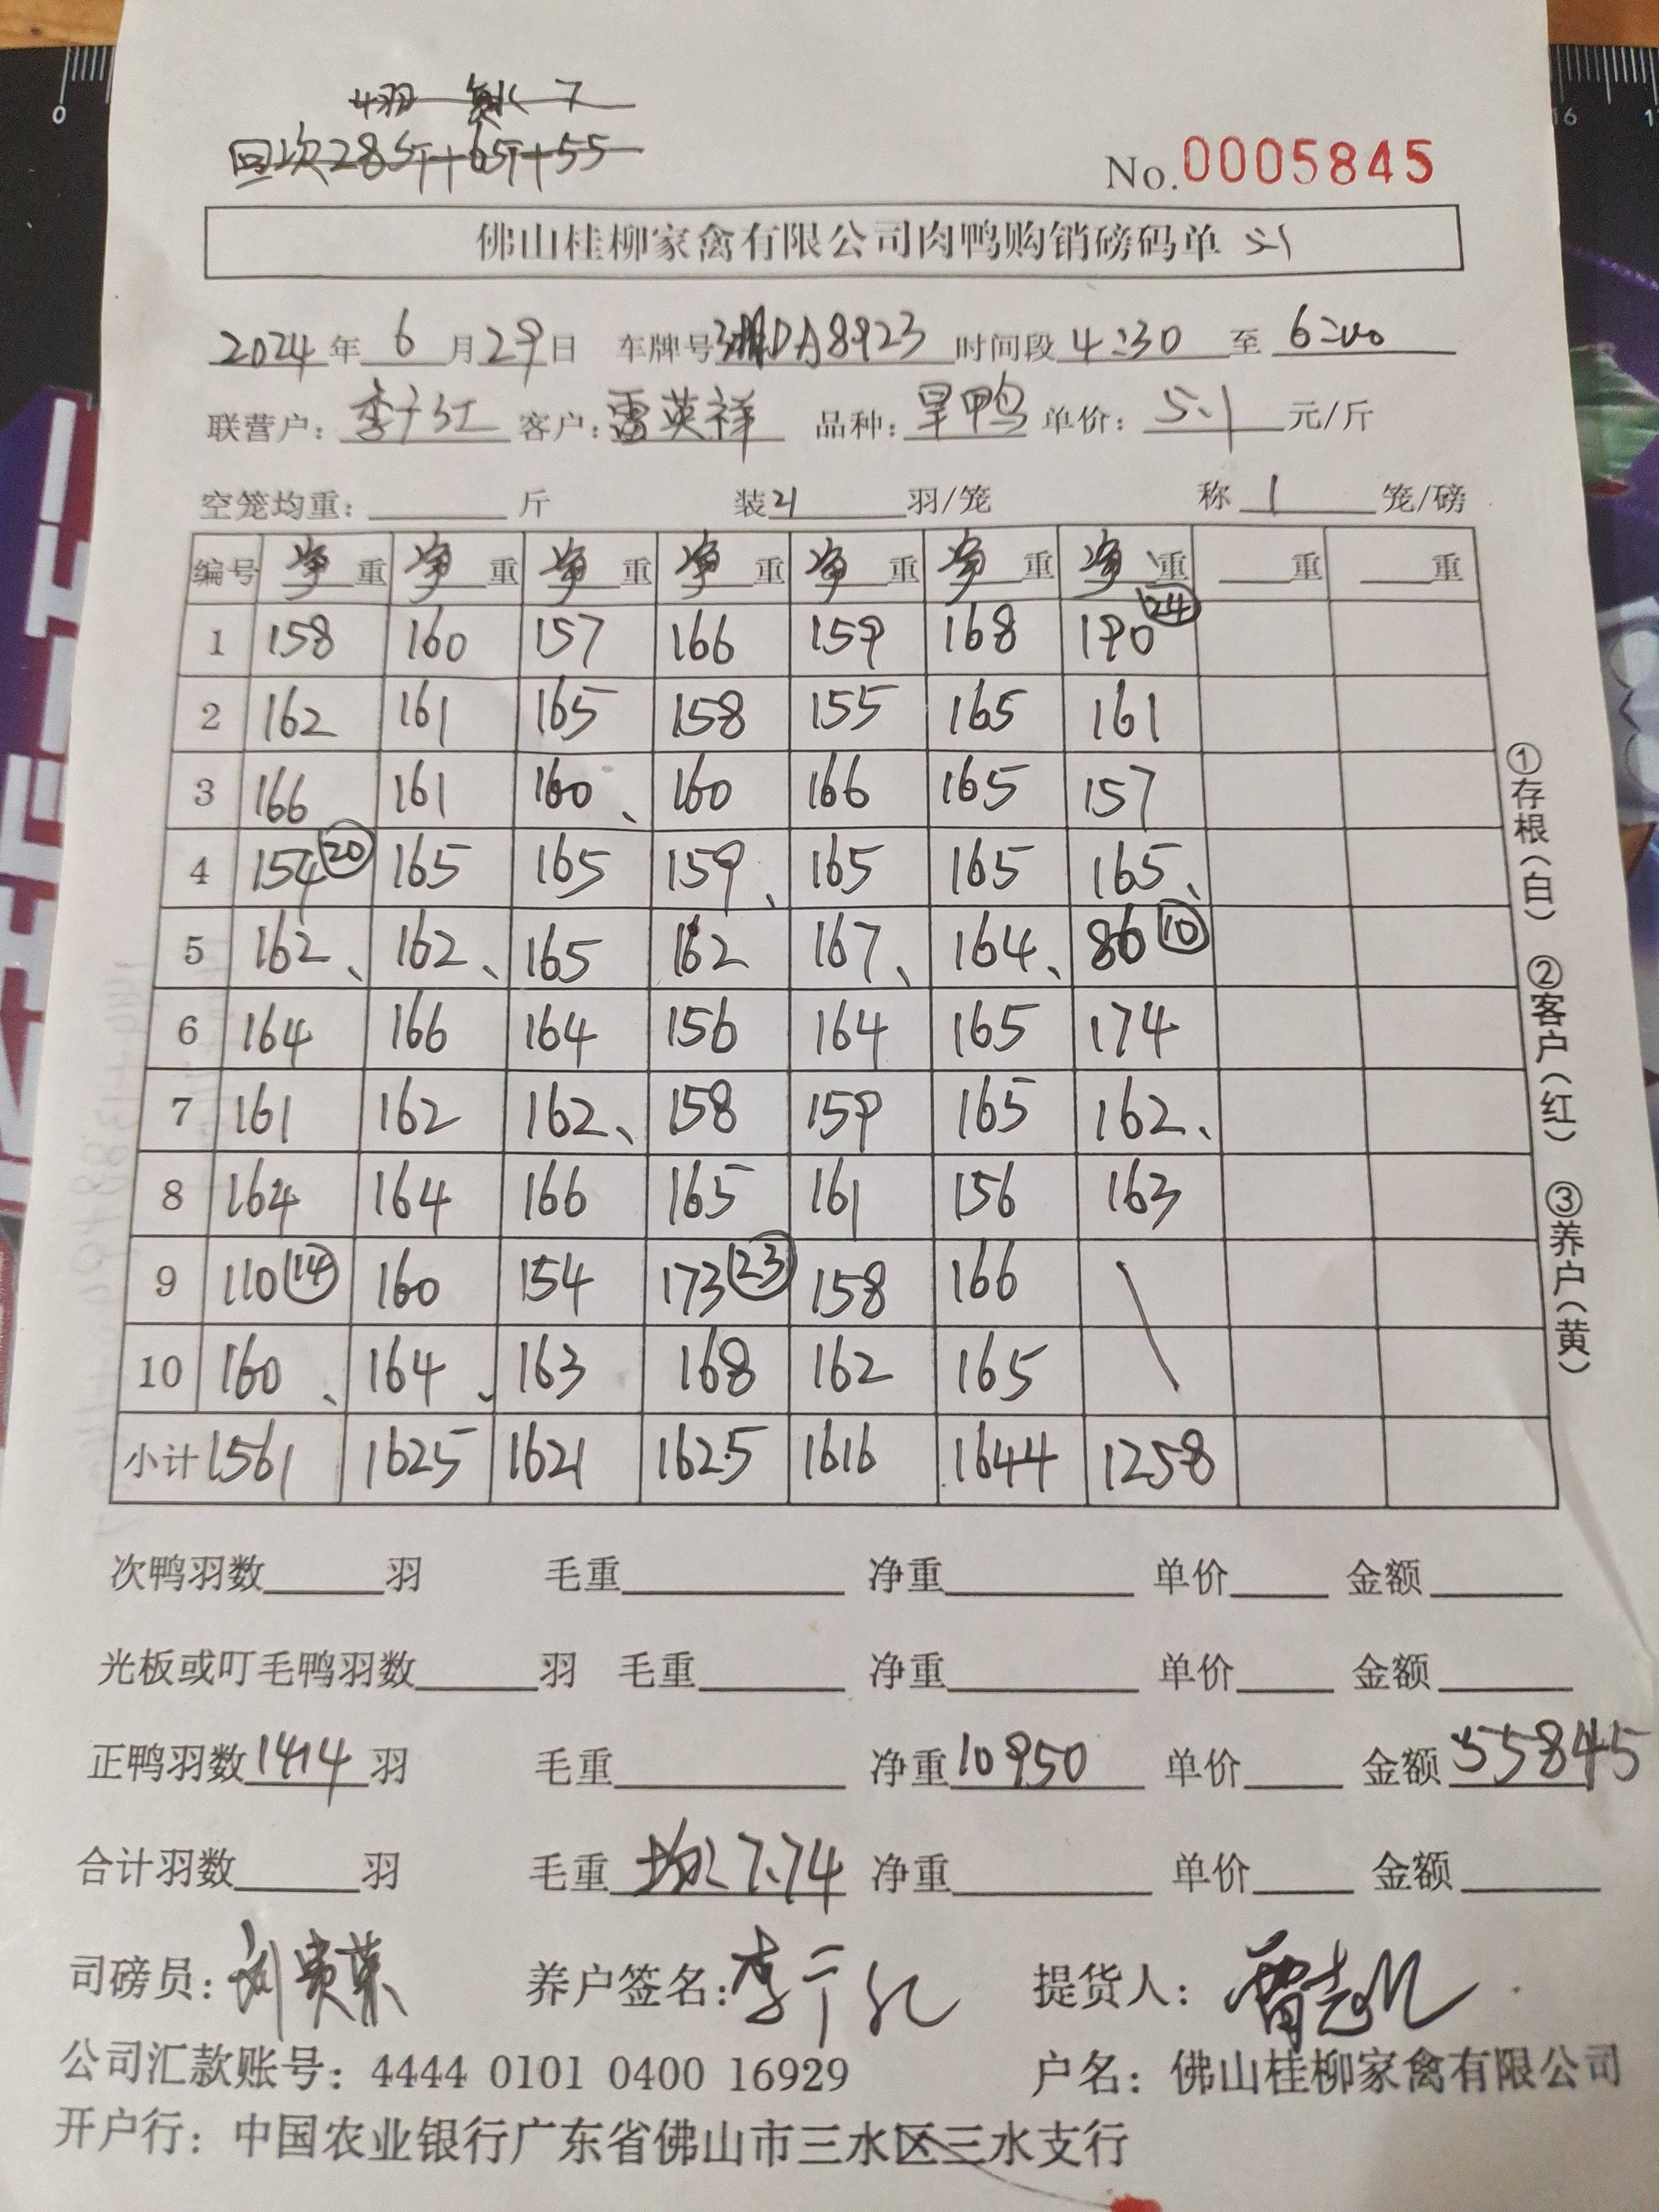 4羽 7
回次28斤+6斤+55
No.0005845
佛山桂柳家禽有限公司肉鸭购销磅码单 5.1
2024年6月29日 车牌号湘DA8923 时间段4:30至6:00
联营户: 李于红 客户: 雷英祥 品种: 旱鸭 单价: 5.1元/斤
空笼均重: 斤 装21羽/笼 称1笼/磅
编号 净重 净重 净重 净重 净重 净重 净重 重 重
1 158 160 157 166 159 168 190 24
2 162 161 165 158 155 165 161
3 166 161 160、 160 166 165 157
4 154 20 165 165 159、 165 165 165、
5 162、 162、 165 162 167、 164、 86 10
6 164 166 164 156 164 165 174
7 161 162 162、 158 159 165 162、
8 164 164 166 165 161 156 163
9 110 14 160 154 173 23 158 166
10 160、 164、 163 168 162 165
小计 1561 1625 1621 1625 1616 1644 1258
①存根(白) ②客户(红) ③养户(黄)
次鸭羽数 羽 毛重 净重 单价 金额
光板或叮毛鸭羽数 羽 毛重 净重 单价 金额
正鸭羽数1414羽 毛重 净重10950 单价 金额55845
合计羽数 羽 毛重 均7.74 净重 单价 金额
司磅员: 刘贵荣 养户签名: 李于红 提货人:
公司汇款账号: 4444 0101 0400 16929 户名: 佛山桂柳家禽有限公司
开户行: 中国农业银行广东省佛山市三水区三水支行